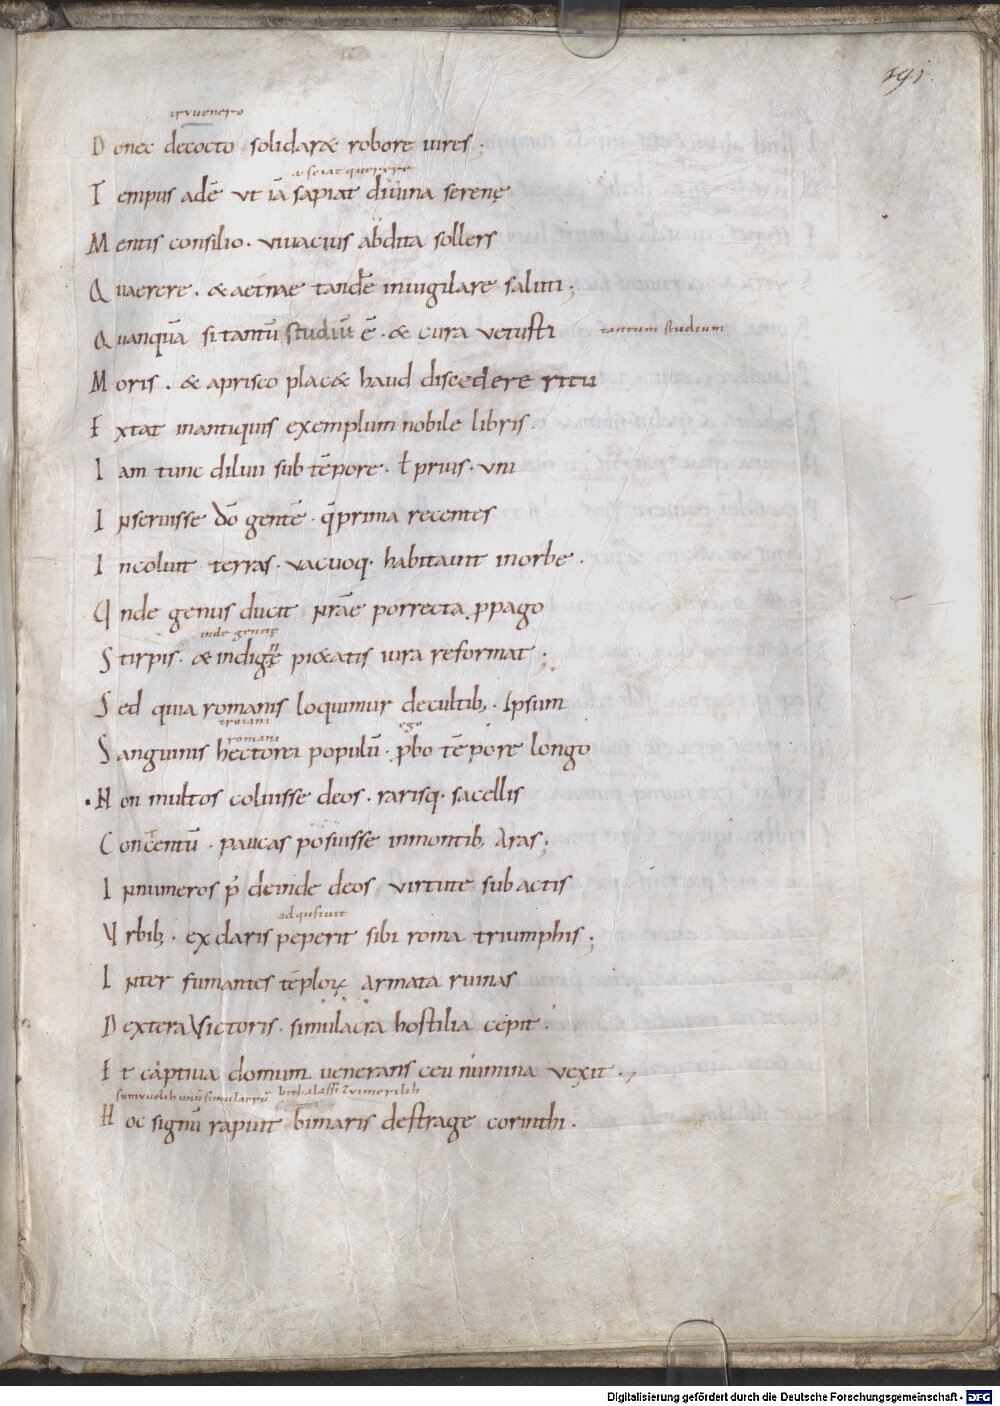 191.
Donec decocto solidaræ robore uires;
Tempus adē ut iā sapiat diuina serenę
Mentis consilio. uiuacius abdita sollers
Quaerere. & aeternae tandē inuigilare saluti;
Quanquā si tantū studiū ē. & cura uetusti tantum studium
Moris. & aprisco plac& haud discedere ritu
Extat inantiquis exemplum nobile libris.
Iam tunc diluuii sub tēpore. ł prius. uni
Inseruisse dō gentē. q̄ prima recentes
Incoluit terras. uacuoq. habitauit inorbe.
Unde genus ducit nrāe porrecta ppago
inde gentię
Stirpis. & indigꝫ pi&atis iura reformat;
Sed quia romanis loquimur decultib;. Ipsum
troiani
romani ego
Sanguinis hectorei populū. pbo tēpore longo
Non multos coluisse deos. rarisq. sacellis
Contentū. paucas posuisse inmontib; Aras;
Innumeros p̄ deinde deos. uirtute subactis
adqusiuit
Urbib;. exclaris peperit sibi roma triumphis;
Inter fumantes tēploꝝ armata ruinas
Dextera Victoris. simulacra hostilia cepit.
Et captiua domum uenerans ceu numina uexit.,
Hoc signū rapuit bimaris destrage corinthi.
Digitalisierung gefördert durch die Deutsche Forschungsgemeinschaft - DFG